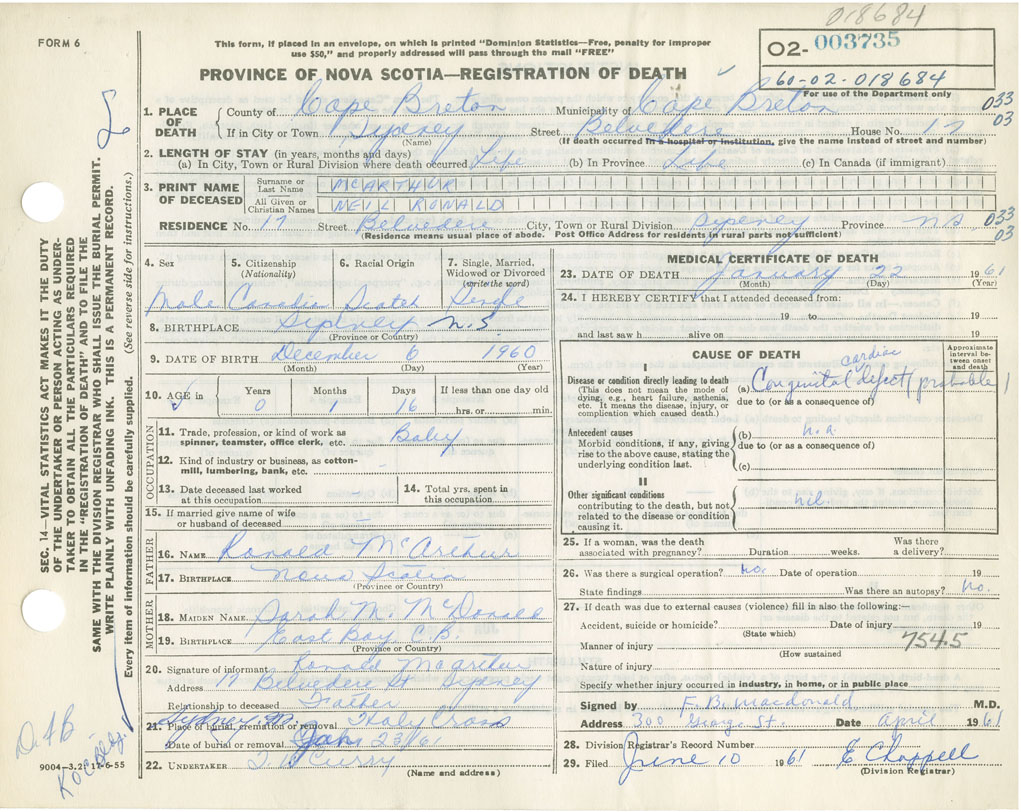 018684
FORM 6
This form, if placed in an envelope, on which is printed "Dominion Statistics—Free, penalty for improper
use $50," and properly addressed will pass through the mail "FREE"
O2- 003735
60-02-018684
For use of the Department only
PROVINCE OF NOVA SCOTIA—REGISTRATION OF DEATH
033
03
1. PLACE OF DEATH
County of Cape Breton Municipality of Cape Breton
If in City or Town Sydney Street Belvedere House No. 17
(Name) (If death occurred in a hospital or institution, give the name instead of street and number)
2. LENGTH OF STAY (in years, months and days)
(a) In City, Town or Rural Division where death occurred Life (b) In Province Life (c) In Canada (if immigrant)
3. PRINT NAME OF DECEASED
Surname or Last Name MCARTHUR
All Given or Christian Names NEIL RONALD
RESIDENCE No. 17 Street Belvedere City, Town or Rural Division Sydney Province NS
033
03
(Residence means usual place of abode. Post Office Address for residents in rural parts not sufficient)
4. Sex Male
5. Citizenship (Nationality) Canadian
6. Racial Origin Scotch
7. Single, Married, Widowed or Divorced (write the word) Single
8. BIRTHPLACE Sydney N.S.
(Province or Country)
9. DATE OF BIRTH December 6 1960
(Month) (Day) (Year)
10. AGE in
Years 0 Months 1 Days 16 If less than one day old
hrs. or min.
OCCUPATION
11. Trade, profession, or kind of work as spinner, teamster, office clerk, etc. Baby
12. Kind of industry or business, as cotton-mill, lumbering, bank, etc.
13. Date deceased last worked at this occupation
14. Total yrs. spent in this occupation
15. If married give name of wife or husband of deceased
FATHER
16. NAME Ronald McArthur
17. BIRTHPLACE Nova Scotia
(Province or Country)
MOTHER
18. MAIDEN NAME Sarah M. McDonald
19. BIRTHPLACE East Bay C.B.
(Province or Country)
20. Signature of informant Ronald McArthur
Address 17 Belvedere St Sydney
Relationship to deceased Father
21. Place of burial, cremation or removal Sydney Holy Cross
Date of burial or removal Jan 23/61
22. UNDERTAKER T W Curry
(Name and address)
MEDICAL CERTIFICATE OF DEATH
23. DATE OF DEATH January 22 1961
(Month) (Day) (Year)
24. I HEREBY CERTIFY that I attended deceased from:
19 to 19
and last saw h alive on 19
CAUSE OF DEATH
Approximate interval between onset and death
I
Disease or condition directly leading to death
(This does not mean the mode of dying, e.g., heart failure, asthenia, etc. It means the disease, injury, or complication which caused death.)
(a) Congenital cardiac defect (probable)
due to (or as a consequence of)
Antecedent causes
Morbid conditions, if any, giving rise to the above cause, stating the underlying condition last.
(b) n.a.
due to (or as a consequence of)
(c)
II
Other significant conditions
contributing to the death, but not related to the disease or condition causing it.
nil.
25. If a woman, was the death associated with pregnancy? Duration weeks. Was there a delivery?
26. Was there a surgical operation? no. Date of operation 19
State findings Was there an autopsy? no.
27. If death was due to external causes (violence) fill in also the following:—
Accident, suicide or homicide? Date of injury 19
(State which)
754.5
Manner of injury
(How sustained
Nature of injury
Specify whether injury occurred in industry, in home, or in public place
Signed by F. B. Macdonald M.D.
Address 300 George St. Date April 1961
28. Division Registrar's Record Number
29. Filed June 10 1961 E Chappell
(Division Registrar)
SEC. 14—VITAL STATISTICS ACT MAKES IT THE DUTY
OF THE UNDERTAKER OR PERSON ACTING AS UNDER-
TAKER TO OBTAIN ALL THE PARTICULARS REQUIRED
IN THE "REGISTRATION OF DEATH" AND TO FILE THE
SAME WITH THE DIVISION REGISTRAR WHO SHALL ISSUE THE BURIAL PERMIT.
WRITE PLAINLY WITH UNFADING INK. THIS IS A PERMANENT RECORD.
Every item of information should be carefully supplied. (See reverse side for instructions.)
9004—3.2 17-6-55